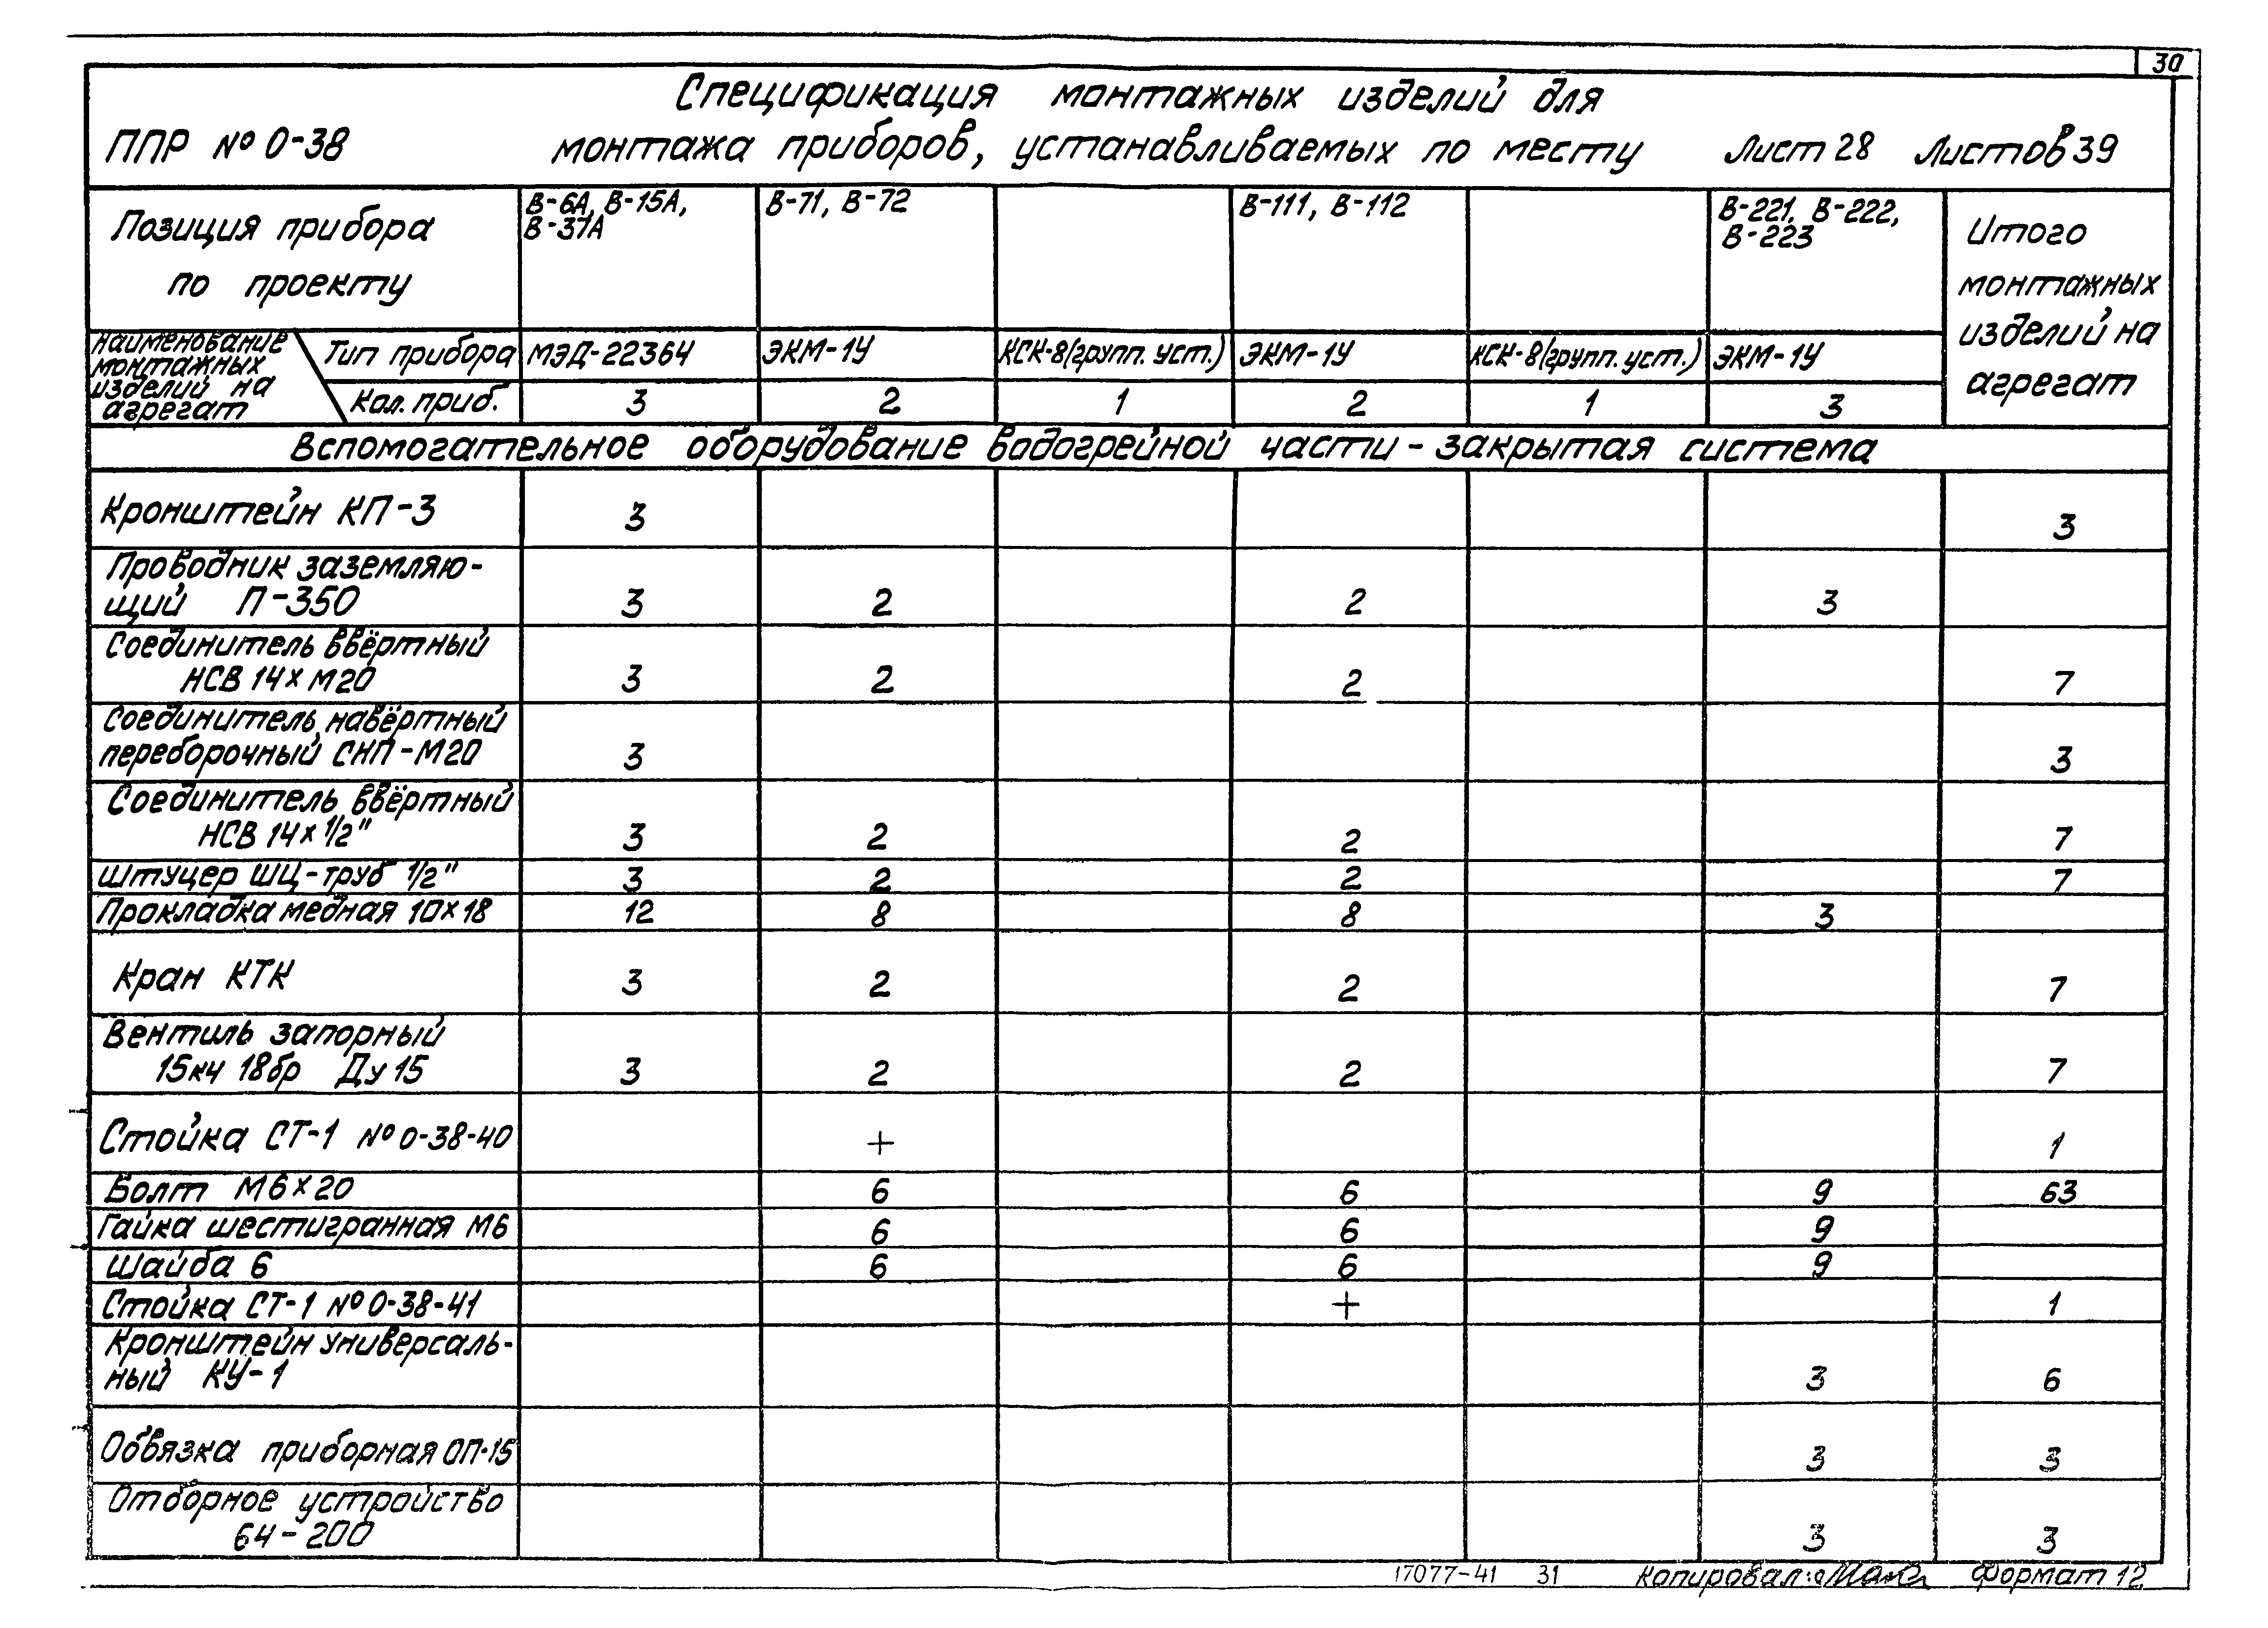 30
Спецификация монтажных изделий для
ППР № 0-38 монтажа приборов, устанавливаемых по месту Лист 28 Листов 39
Позиция прибора
по проекту
В-6А, В-15А,
В-37А
В-71, В-72
В-111, В-112
В-221, В-222,
В-223
Итого
монтажных
изделий на
агрегат
Наименование
монтажных
изделий на
агрегат
Тип прибора МЭД-22364 ЭКМ-1У КСК-8(групп. уст.) ЭКМ-1У КСК-8(групп. уст.) ЭКМ-1У
Кол. приб. 3 2 1 2 1 3
Вспомогательное оборудование водогрейной части - закрытая система
Кронштейн КП-3 3 3
Проводник заземляю-
щий П-350 3 2 2 3
Соединитель ввёртный
НСВ 14х М20 3 2 2 7
Соединитель навёртный
переборочный СНП-М20 3 3
Соединитель ввёртный
НСВ 14х 1/2" 3 2 2 7
Штуцер ШЦ-труб 1/2" 3 2 2 7
Прокладка медная 10х18 12 8 8 3
Кран КТК 3 2 2 7
Вентиль запорный
15кч 18бр Ду 15 3 2 2 7
Стойка СТ-1 № 0-38-40 + 1
Болт М6х20 6 6 9 63
Гайка шестигранная М6 6 6 9
Шайба 6 6 6 9
Стойка СТ-1 № 0-38-41 + 1
Кронштейн универсаль-
ный КУ-1 3 6
Обвязка приборная ОП-15 3 3
Отборное устройство
64-200 3 3
17077-41 31 Копировал: Формат 12